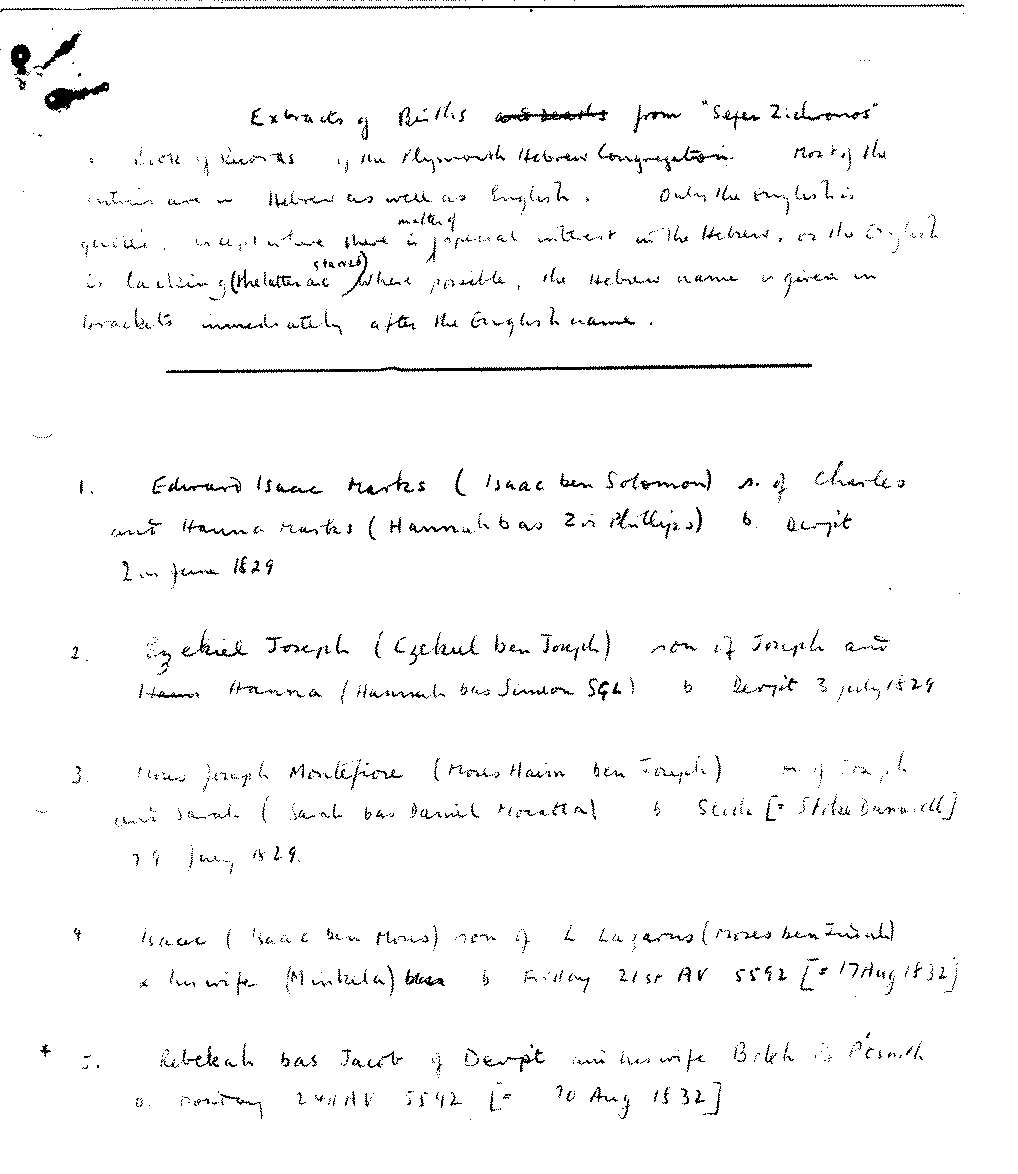 Extracts of Births and Deaths from "Sefer Zichronos"
Book of Records of the Plymouth Hebrew Congregation. Most of the
entries are in Hebrew as well as English. Only the English is
quoted, except where there is matter of special interest in the Hebrew, or the English
is lacking (the latter are starred) Where possible, the Hebrew name is given in
brackets immediately after the English name.
1. Edward Isaac Marks (Isaac ben Solomon) s. of Charles
and Hanna Marks (Hannah bas Zvi Phillips) b. Devpt
2 June 1829
2. Ezekiel Joseph (Ezekiel ben Joseph) son of Joseph and
Hanna (Hannah bas Simeon SGL) b Devpt 3 July 1829
3. Moses Joseph Montefiore (Moses Haim ben Joseph) of Joseph
and Sarah (Sarah bas Daniel Mocatta) b [= Stoke Damerell]
July 1829.
4 Isaac (Isaac ben Moses) son of L Lazarus (Moses ben Judah)
& his wife (Minkela) b Friday 21st AV 5592 [= 17 Aug 1832]
* 5. Rebekah bas Jacob of Devpt and his wife
b. Monday 24th AV 5592 [= 20 Aug 1832]